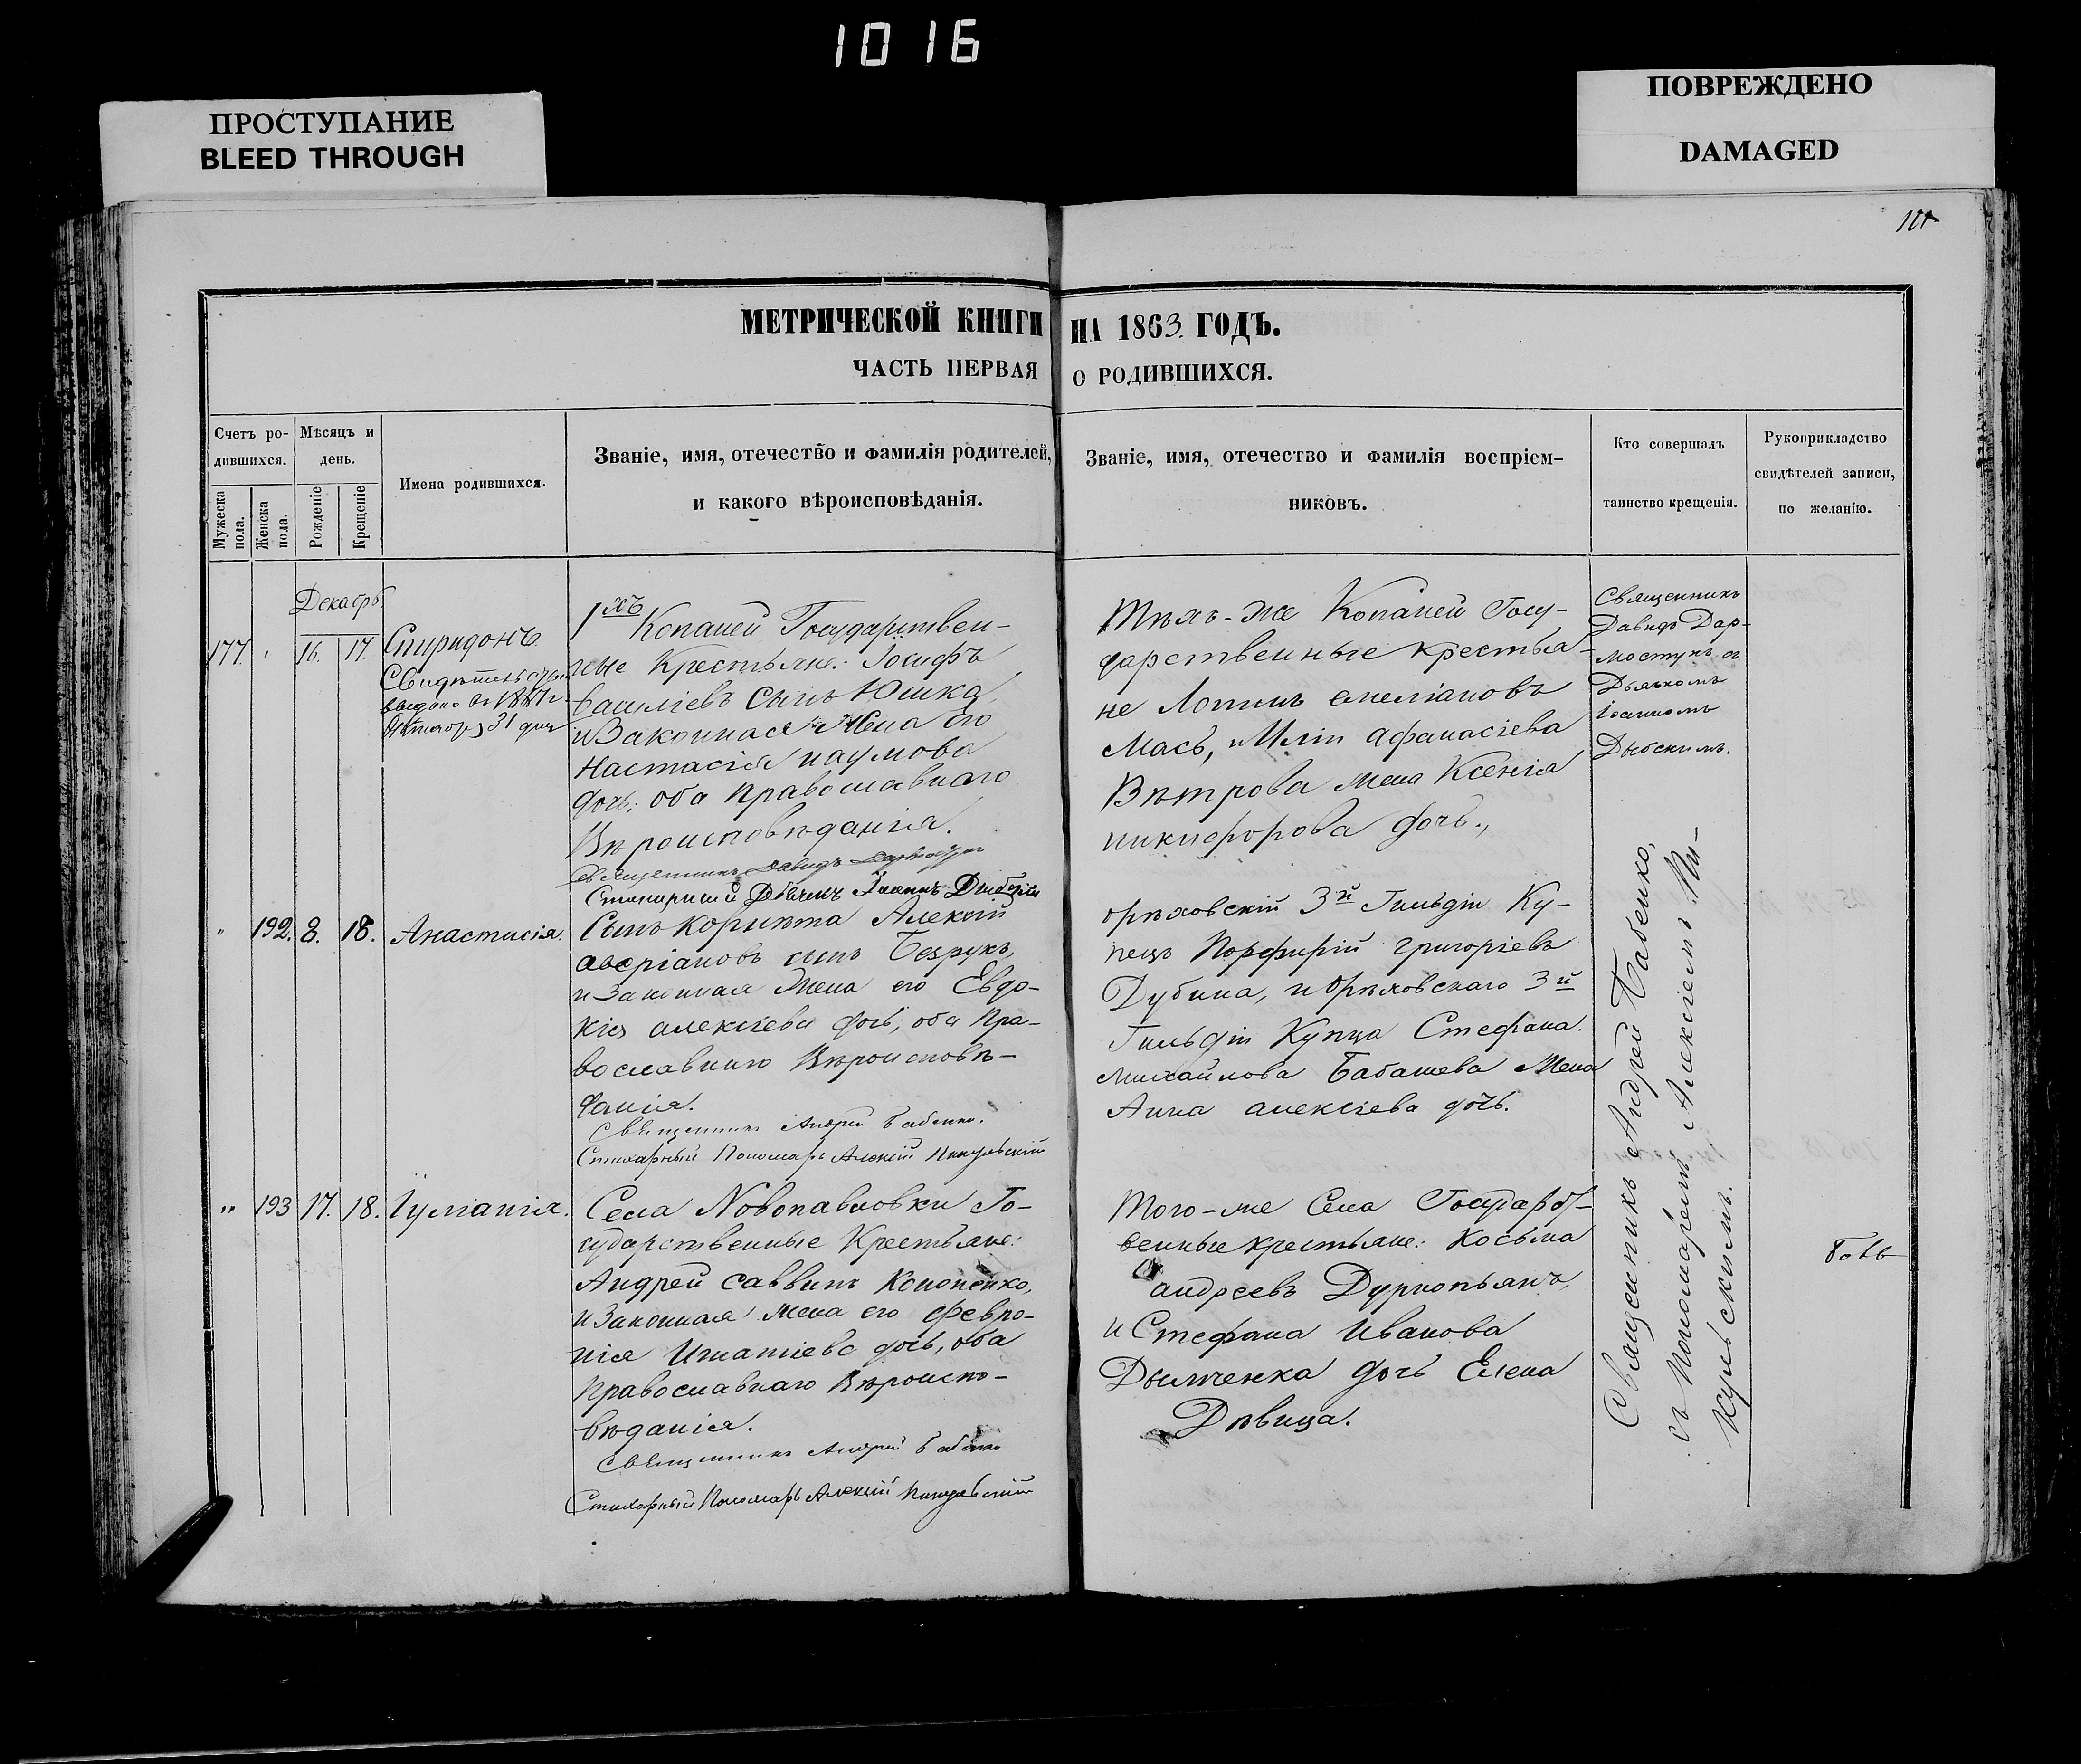 1016
ПРОСТУПАНИЕ
BLEED THROUGH
ПОВРЕЖДЕНО
DAMAGED
МЕТРИЧЕСКОЙ КНИГИ НА 1863 ГОДЪ.
ЧАСТЬ ПЕРВАЯ О РОДИВШИХСЯ.
Счетъ ро-
дившихся.
Мужеска
пола.
Женска
пола.
Мѣсяцъ и
день.
Рожденіе
Крещеніе
Имена родившихся.
Званіе, имя, отечество и фамилія родителей,
и какого вѣроисповѣданія.
Званіе, имя, отечество и фамилія воспріем-
никовъ.
Кто совершалъ
таинство крещенія.
Рукоприкладство
свидѣтелей записи,
по желанію.
Декабрь
177. " 16. 17. Спиридонъ
выдано
31 дня
1хъ Копаней Государствен-
ные Крестьяне: Іосифъ
Василіевъ сынъ Юшка,
и Законная Жена его
Настасія наумова
дочь; оба Православнаго
Вѣроисповѣданія.
Священникъ Давидъ
Стихарный Дьячекъ Іоаннъ
Тѣхъ-же Копаней Госу-
дарственные крестья-
не Логинъ емеліановъ
Мась, и Иліи Афанасіева
Вѣтрова жена Ксенія
никифорова дочь.,
Священникъ
Давидъ Дар-
мостукъ съ
Дьячкомъ
Іоанномъ
" 192. 8. 18. Анастасія.
Сынъ Алексій
аверіановъ сынъ Безрукъ,
и Законная Жена его Евдо-
кія алексіева дочь, оба Пра-
вославнаго Вѣроисповѣ-
данія.
Священникъ Андрей Бабенко.
Стихарный Пономарь Алексій
Орѣховскій 3й Гильдіи Ку-
пецъ Порфирій григоріевъ
Дубина, и Орѣховскаго 3й
Гильдіи Купца Стефана
Михайлова Бабашева Жена
Анна алексіева дочь.
Священникъ Андрей Бабенко,
съ Пономаремъ Алексіемъ Пи-
кульскимъ.
" 193 17. 18. Іуліанія.
Села Новопавловки Го-
сударственные Крестьяне:
Андрей Саввинъ Кононенко,
и Законная жена его Февро-
нія Игнатіева дочь, оба
Православнаго Вѣроиспо-
вѣданія.
Священникъ Андрей Бабенко
Стихарный Пономарь Алексій
Того-же Села Государст-
венные крестьяне: Косьма
андреевъ Дурнопьянъ,
и Стефана Иванова
Дымченка дочь Елена
Дѣвица.